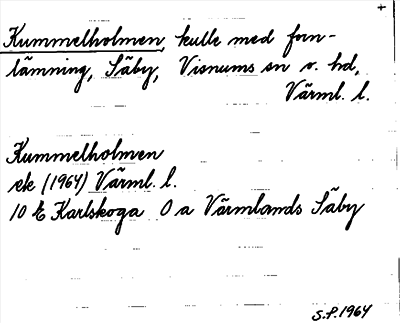 +
Kummelholmen, kulle med forn-
lämning, Säby, Visnums sn o. hd,
Värml. l.
Kummelholmen
ek (1964) Värml. l.
10 E Karlskoga 0 a Värmlands Säby
S.P. 1964